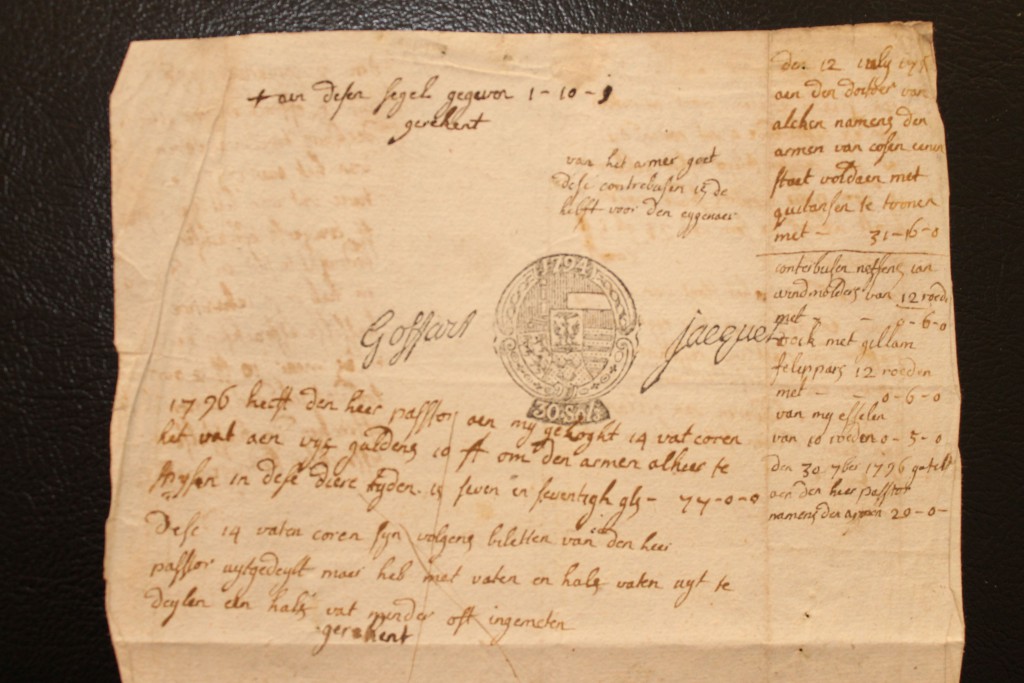 + aen desen segel gegeven 1-10-
gerekent
van het armer goet
dese contrebusen is de
helft voor den eygenaer
1794
Goffart
jacquet
30 Sols
1796 heeft den heer passtor aen my gekoght 14 vat coren
het vat aen vyf guldens 10 st om den armen alhier te
spysen in dese diere tyden is seven en seventigh gls - 77-0-0
Dese 14 vaten coren syn volgens biletten van den heer
passtor uytgedeylt maer heb met vaten en half vaten uyt te
deylen een half vat minder oft ingemeten
gerekent
den 12 july
aen den docktor van
alcken namens den
armen van cosen eenen
staet voldaen met
quitansen te toonen
met - 31-16-0
conterbusen neffens ian
windmolders van 12 roed
met - - 0-6-0
oock met gillam
felippars 12 roeden
met - - 0-6-0
van my esselen
van 10 roeden 0-5-0
den 30 7ber 1796 getelt
aen den heer passtor
namens der armen 20-0-